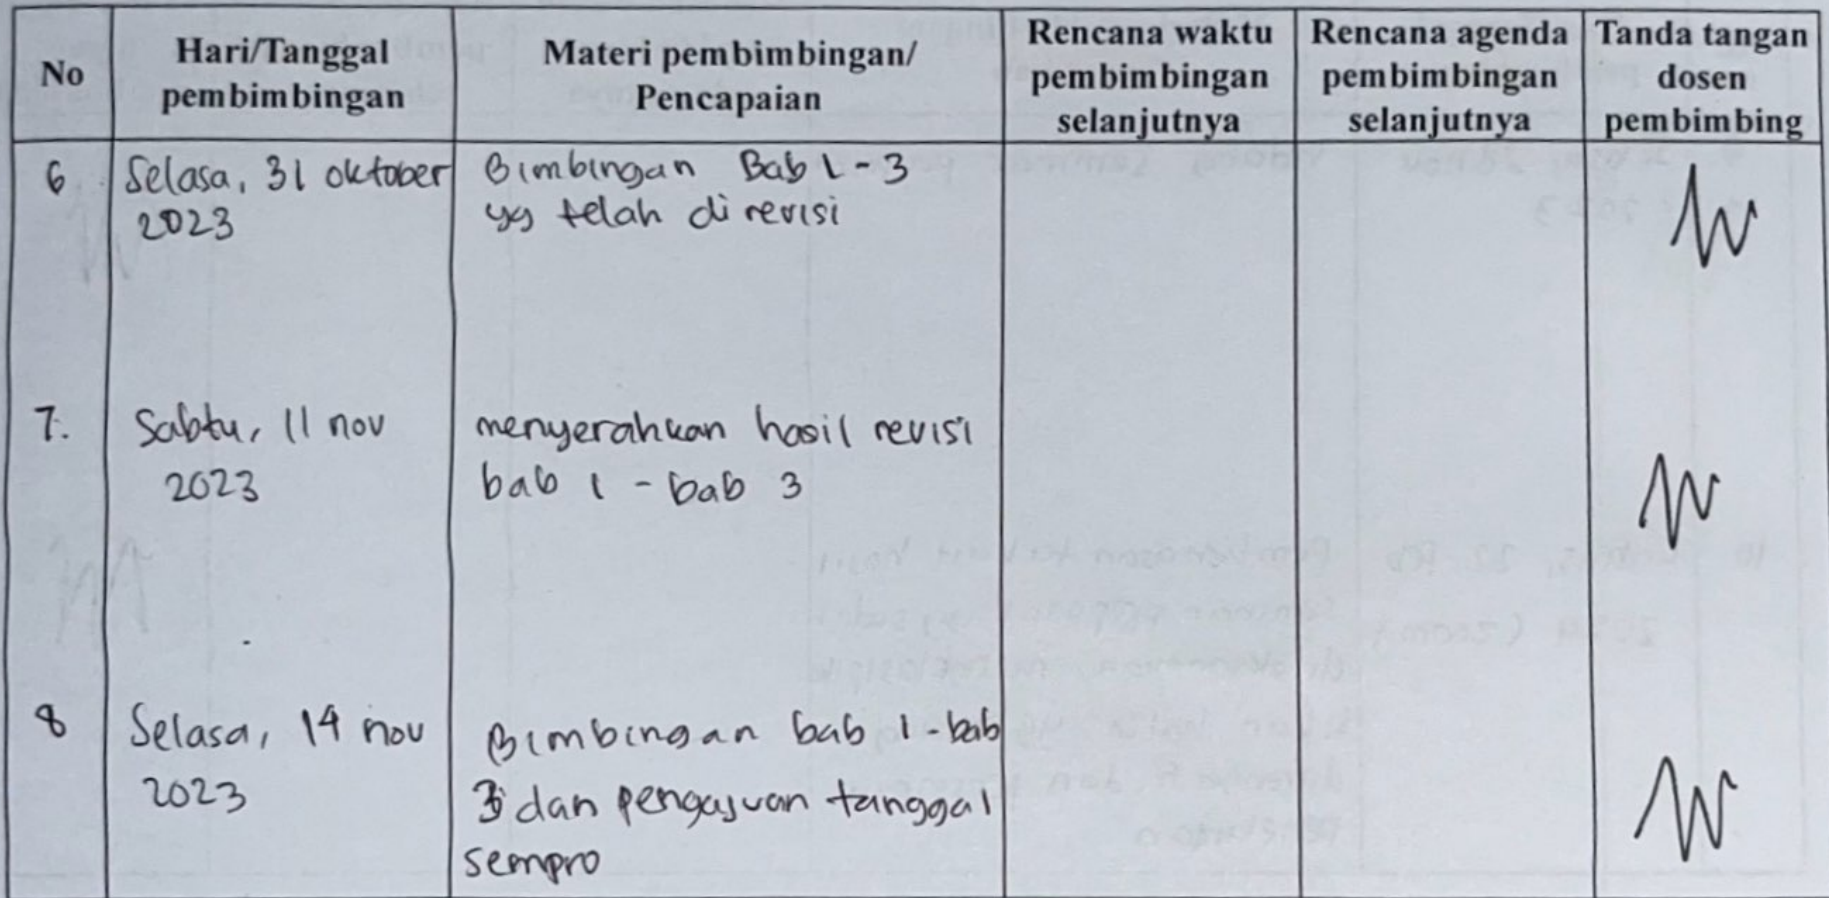 No
Hari/Tanggal
pembimbingan
Materi pembimbingan/
Pencapaian
Rencana waktu
pembimbingan
selanjutnya
Rencana agenda
pembimbingan
selanjutnya
Tanda tangan
dosen
pembimbing
6
Selasa, 31 oktober
2023
Bimbingan Bab 1-3
yg telah di revisi
7.
Sabtu, 11 nov
2023
menyerahkan hasil revisi
bab 1 - bab 3
8
Selasa, 14 nov
2023
Bimbingan bab 1-bab
3 dan pengajuan tanggal
sempro